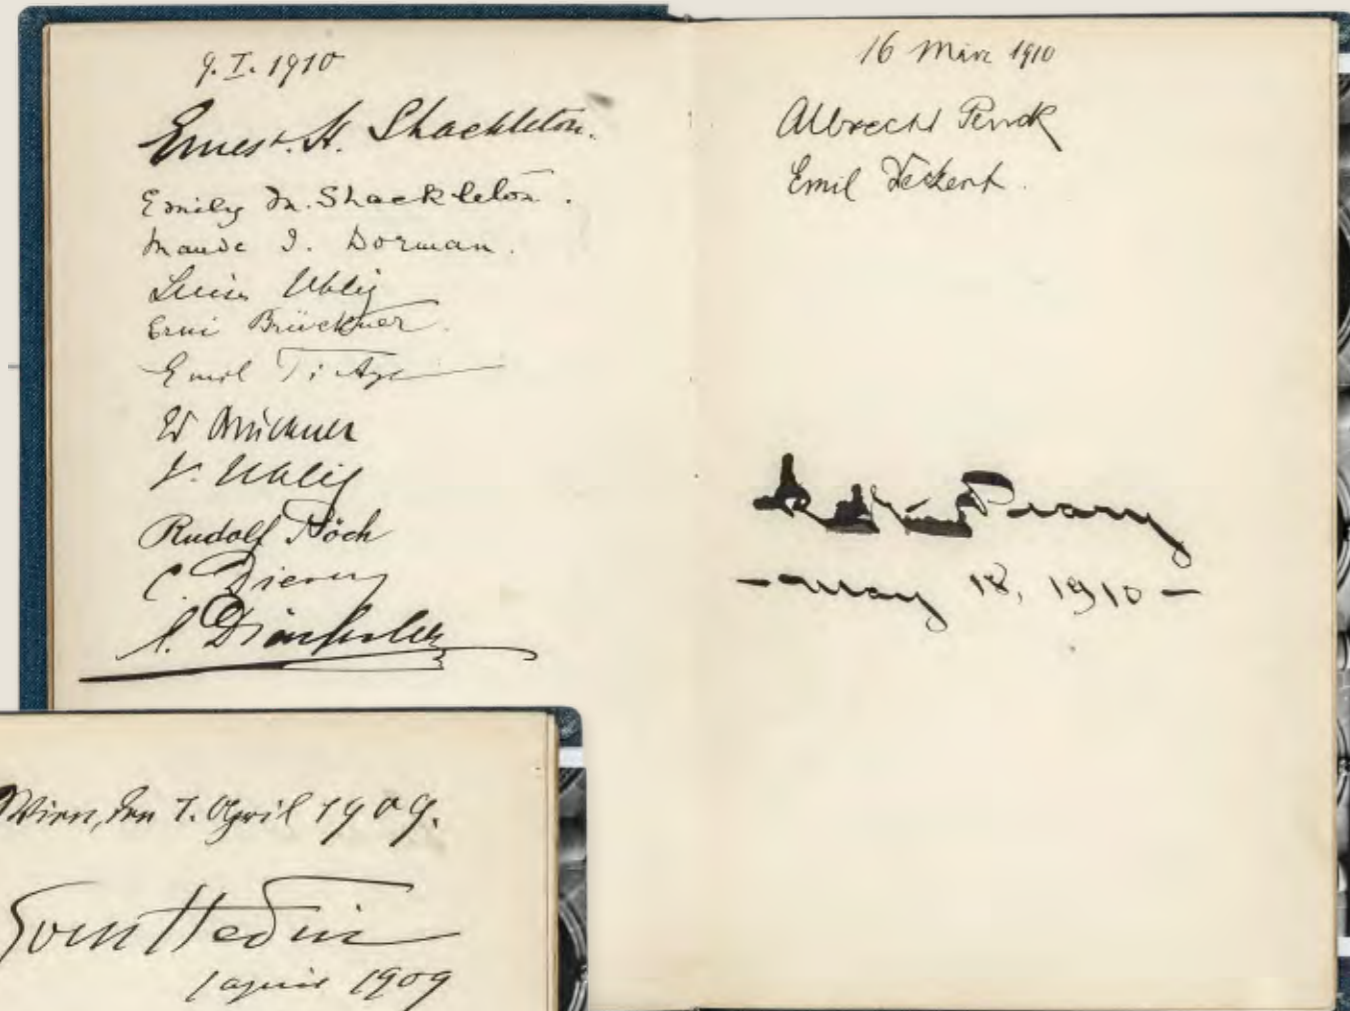 9. I. 1910
Ernest. H. Shackleton.
Emily M. Shackleton.
Maude I. Dorman.
Luise Uhlig
Erni Brückner.
Emil Tietze
Ed Brückner
V. Uhlig
Rudolf Pöch
C. Diener
16 März 1910
Albrecht Penck
Emil Deckert.
Peary
- May 18, 1910 -
Wien, den 1. April 1909.
Sven Hedin
1 april 1909